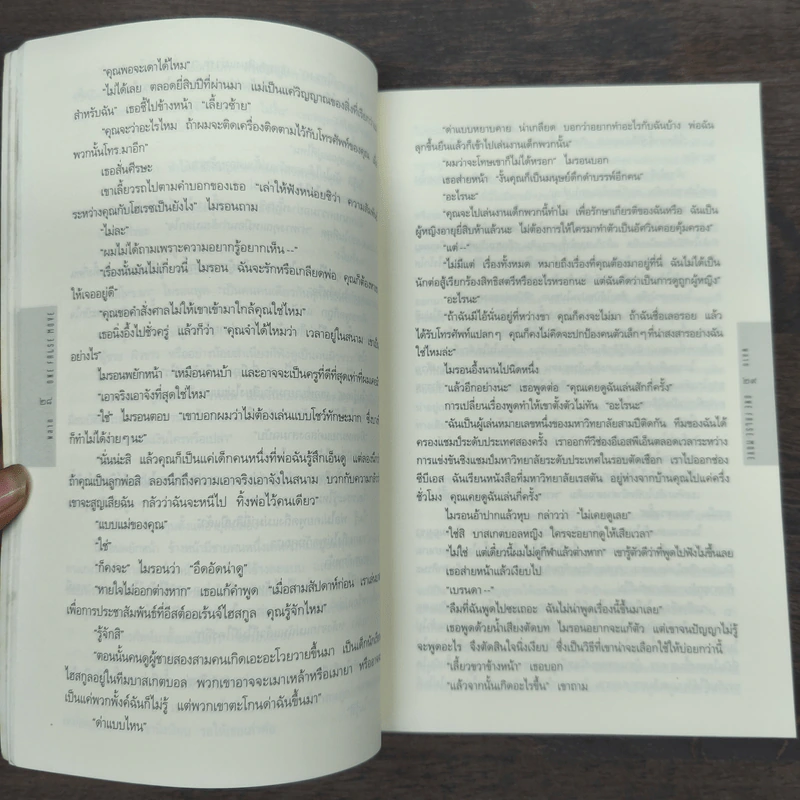 "คุณพอจะเดาได้ไหม"
"ไม่ได้เลย ตลอดยี่สิบปีที่ผ่านมา แม่เป็นแค่วิญญาณของสิ่งที่เรียกว่า
สำหรับฉัน" เธอชี้ไปข้างหน้า "เลี้ยวซ้าย"
"คุณจะว่าอะไรไหม ถ้าผมจะติดเครื่องติดตามไว้กับโทรศัพท์ของคุณ
พวกนั้นโทร.มาอีก"
เธอสั่นศีรษะ
เขาเลี้ยวรถไปตามคำบอกของเธอ "เล่าให้ฟังหน่อยซิว่า ความสัมพันธ์
ระหว่างคุณกับโฮเรซเป็นยังไง" ไมรอนถาม
"ไม่ละ"
"ผมไม่ได้ถามเพราะความอยากรู้อยากเห็น --"
"เรื่องนั้นมันไม่เกี่ยวนี่ ไมรอน ฉันจะรักหรือเกลียดพ่อ คุณก็ต้อง
ให้เจออยู่ดี"
"คุณขอคำสั่งศาลไม่ให้เขาเข้ามาใกล้คุณใช่ไหม"
เธอนิ่งอึ้งไปชั่วครู่ แล้วก็ว่า "คุณจำได้ไหมว่า เวลาอยู่ในสนาม เขาเป็น
อย่างไร"
ไมรอนพยักหน้า "เหมือนคนบ้า และอาจจะเป็นครูที่ดีที่สุดเท่าที่ผมเคย
"เอาจริงเอาจังที่สุดใช่ไหม"
"ใช่" ไมรอนตอบ "เขาบอกผมว่าไม่ต้องเล่นแบบโชว์ทักษะมาก ซึ่ง
ก็ทำไม่ได้ง่ายๆ นะ"
"นั่นน่ะสิ แล้วคุณก็เป็นแค่เด็กคนหนึ่งที่พ่อฉันรู้สึกเอ็นดู แต่ลอง
ถ้าคุณเป็นลูกพ่อสิ ลองนึกถึงความเอาจริงเอาจังในสนาม บวกกับความกลัว
เขาจะสูญเสียฉัน กลัวว่าฉันจะหนีไป ทิ้งพ่อไว้คนเดียว"
"แบบแม่ของคุณ"
"ใช่"
"ก็คงจะ" ไมรอนว่า "อึดอัดน่าดู"
"หายใจไม่ออกต่างหาก" เธอแก้คำพูด "เมื่อสามสัปดาห์ก่อน เรา
เพื่อการประชาสัมพันธ์ที่อีสต์ออเร็นจ์ไฮสกูล คุณรู้จักไหม"
"รู้จักสิ"
"ตอนนั้นคนดูผู้ชายสองสามคนเกิดเอะอะโวยวายขึ้นมา เป็นเด็กนักเรียน
ไฮสกูลอยู่ในทีมบาสเกตบอล พวกเขาอาจจะเมาเหล้าหรือเมายา หรืออาจจะ
เป็นแค่พวกพั้งค์ฉันก็ไม่รู้ แต่พวกเขาตะโกนด่าฉันขึ้นมา"
"ด่าแบบไหน"
๒๘ ONE FALSE MOVE
"ด่าแบบหยาบคาย น่าเกลียด บอกว่าอยากทำอะไรกับฉันบ้าง พ่อฉัน
ลุกขึ้นยืนแล้วก็เข้าไปเล่นงานเด็กพวกนั้น"
"ผมว่าจะโทษเขาก็ไม่ได้หรอก" ไมรอนบอก
เธอส่ายหน้า "งั้นคุณก็เป็นมนุษย์ดึกดำบรรพ์อีกคน"
"อะไรนะ"
"คุณจะไปเล่นงานเด็กพวกนี้ทำไม เพื่อรักษาเกียรติของฉันหรือ ฉันเป็น
ผู้หญิงอายุยี่สิบห้าแล้วนะ ไม่ต้องการให้ใครมาทำตัวเป็นอัศวินคอยคุ้มครอง"
"แต่ --"
"ไม่มีแต่ เรื่องทั้งหมด หมายถึงเรื่องที่คุณต้องมาอยู่ที่นี่ ฉันไม่ได้เป็น
นักต่อสู้เรียกร้องสิทธิสตรีหรืออะไรหรอกนะ แต่ฉันคิดว่าเป็นการดูถูกผู้หญิง"
"อะไรนะ"
"ถ้าฉันมีไอ้นั่นอยู่ที่หว่างขา คุณก็คงจะไม่มา ถ้าฉันชื่อเลอรอย แล้ว
ได้รับโทรศัพท์แปลกๆ คุณก็คงไม่คิดจะปกป้องคนตัวเล็กๆ ที่น่าสงสารอย่างฉัน
ใช่ไหมล่ะ"
ไมรอนอึ้งนานไปนิดหนึ่ง
"แล้วอีกอย่างนะ" เธอพูดต่อ "คุณเคยดูฉันเล่นสักกี่ครั้ง"
การเปลี่ยนเรื่องพูดทำให้เขาตั้งตัวไม่ทัน "อะไรนะ"
"ฉันเป็นผู้เล่นหมายเลขหนึ่งของมหาวิทยาลัยสามปีติดกัน ทีมของฉันได้
ครองแชมป์ระดับประเทศสองครั้ง เราออกทีวีช่องอีเอสพีเอ็นตลอดเวลาระหว่าง
การแข่งขันชิงแชมป์มหาวิทยาลัยระดับประเทศในรอบคัดเชือก เราไปออกช่อง
ซีบีเอส ฉันเรียนหนังสือที่มหาวิทยาลัยเรสตัน อยู่ห่างจากบ้านคุณไปแค่ครึ่ง
ชั่วโมง คุณเคยดูฉันเล่นกี่ครั้ง"
ไมรอนอ้าปากแล้วหุบ กล่าวว่า "ไม่เคยดูเลย"
"ใช่สิ บาสเกตบอลหญิง ใครจะอยากดูให้เสียเวลา"
"ไม่ใช่ แต่เดี๋ยวนี้ผมไม่ดูกีฬาแล้วต่างหาก" เขารู้ตัวดีว่าที่พูดไปฟังไม่ขึ้นเลย
เธอส่ายหน้าแล้วเงียบไป
"เบรนดา --"
"ลืมที่ฉันพูดไปซะเถอะ ฉันไม่น่าพูดเรื่องนี้ขึ้นมาเลย"
เธอพูดด้วยน้ำเสียงตัดบท ไมรอนอยากจะแก้ตัว แต่เขาจนปัญญาไม่รู้
จะพูดอะไร จึงตัดสินใจนิ่งเงียบ ซึ่งเป็นวิธีที่เขาน่าจะเลือกใช้ให้บ่อยกว่านี้
"เลี้ยวขวาข้างหน้า" เธอบอก
"แล้วจากนั้นเกิดอะไรขึ้น" เขาถาม
๒๙ ONE FALSE MOVE